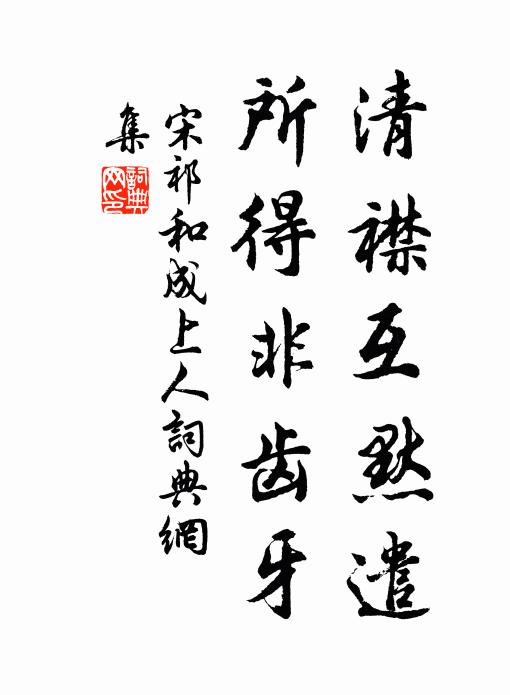 清襟互默遣
所得非齿牙
宋祁和成上人詞典網
集
詞典网印